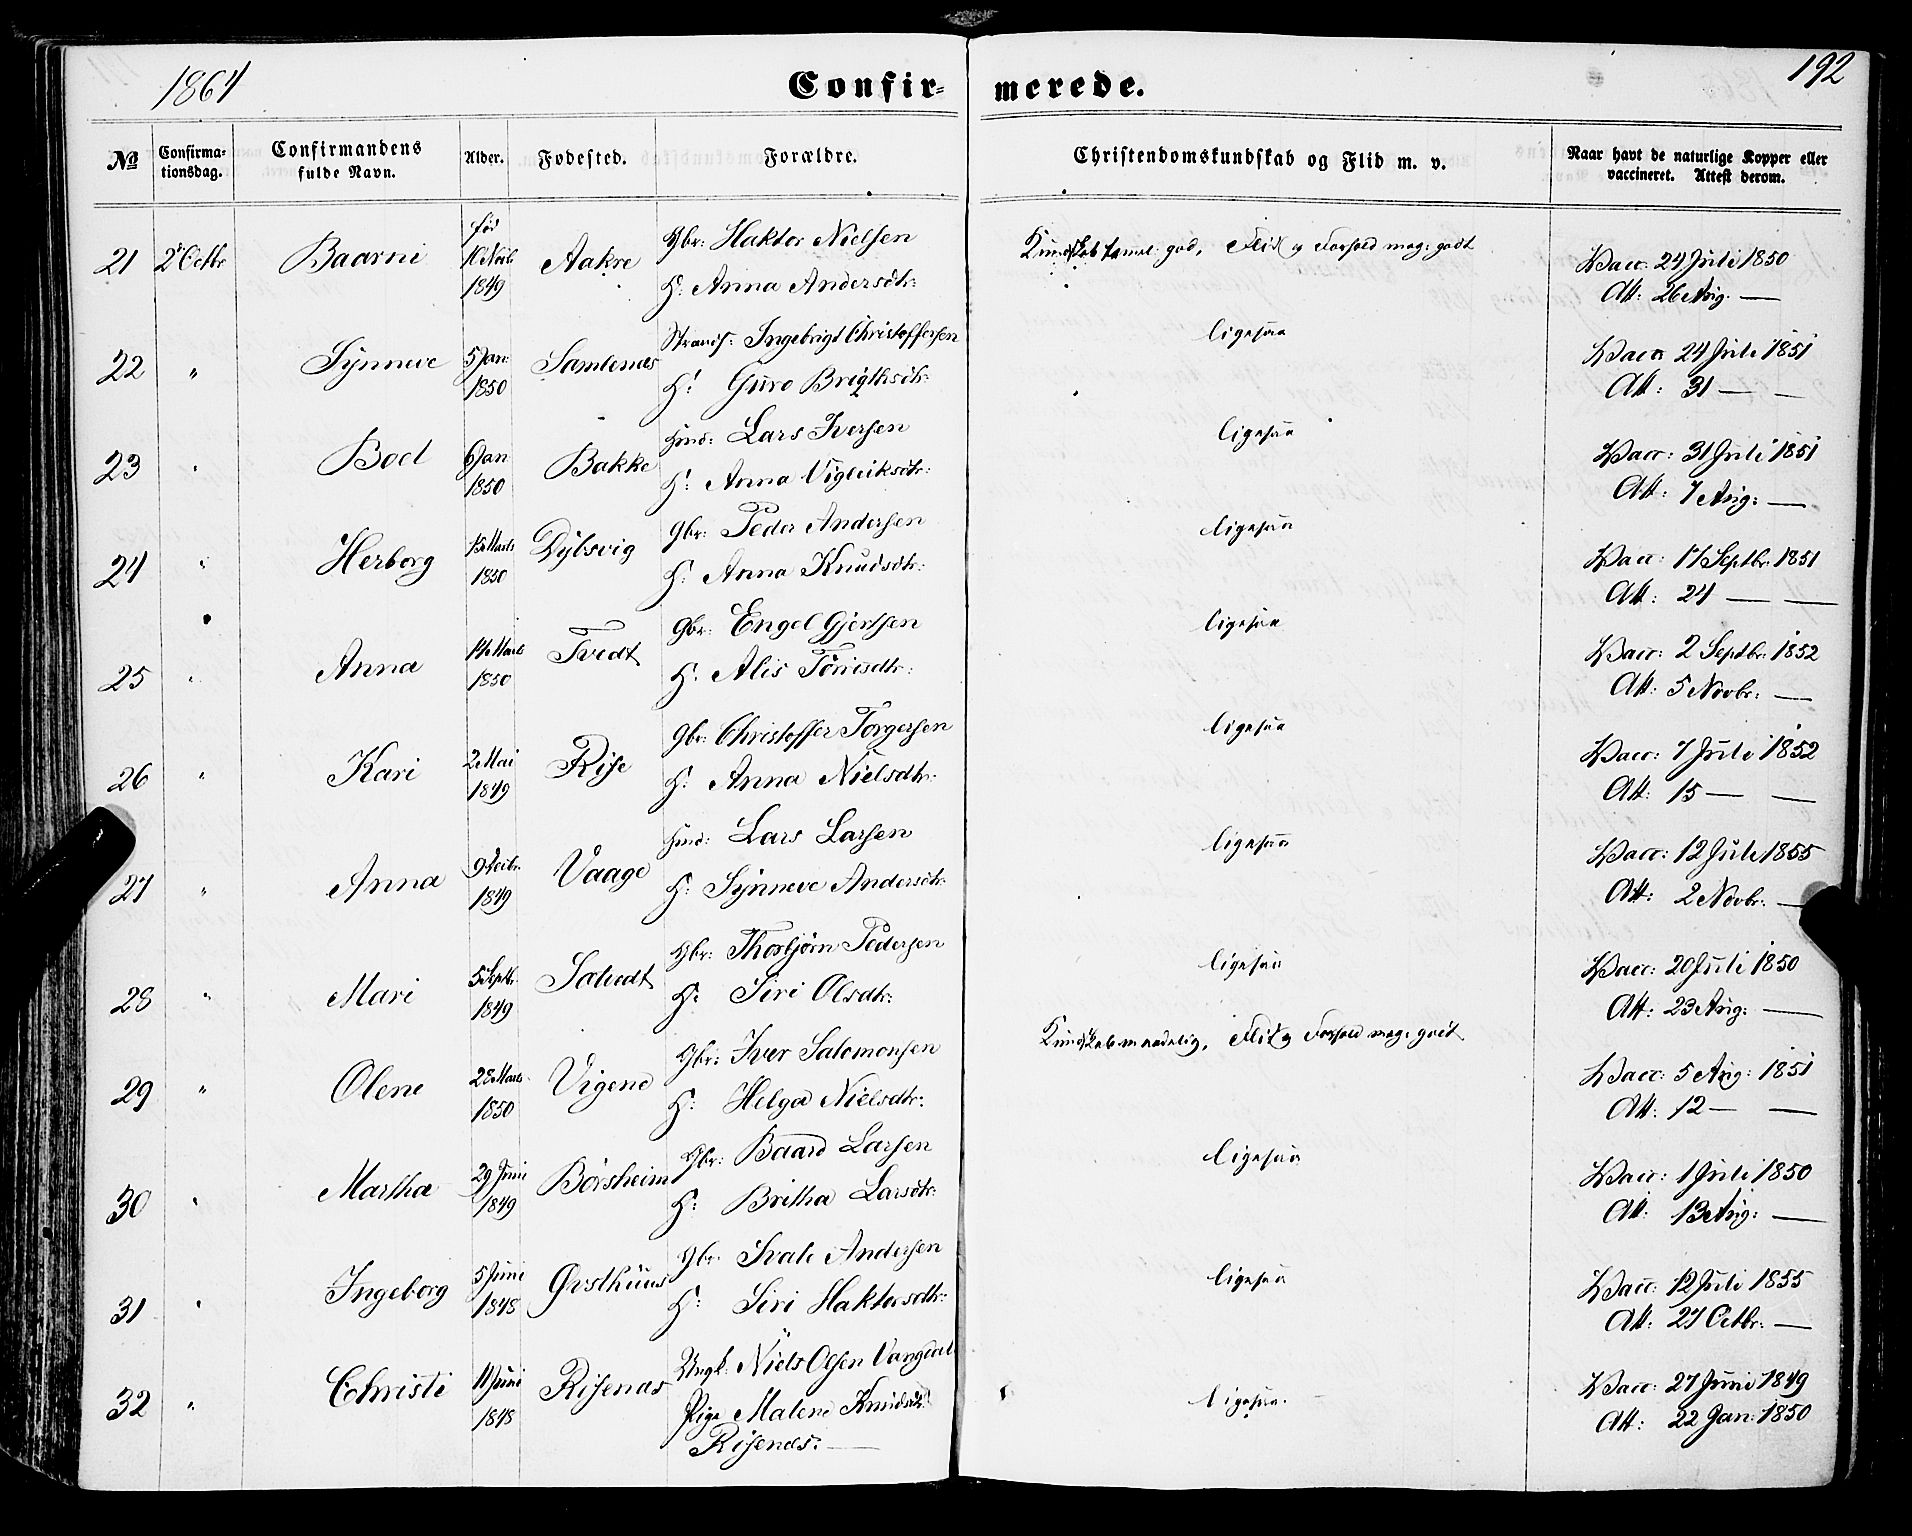 1864 Confir- merede. 192
№ Confirma- tionsdag. Confirmandens fulde Navn. Alder. Fødested. Forældre. Christendomskundskab og Flid m. v. Naar havt de naturlige Kopper eller vaccineret. Attest derom.
21 2 Octbr Baarni 1849 Aakre Gbr: Haktor Nielsen Kundskab taml: god, Flid og Forhold meg: godt Vacc: 24 Juli 1850
H: Anna Andersdtr: Att: 26 Aug. —
22 " Synneve 5 Jan: 1850 Samlenæs Strands: Ingebrigt Christoffersen ligesaa Vacc 24 Juli 1851
H: Guro Brigthsdtr: Att: 31 — —
23 " Boel 6 Jan 1850 Bakke Huusd: Lars Iversen ligesaa Vacc: 31 Juli 1851
H: Anna Vigleiksdtr: Att: 7 Aug: —
24 " Herborg 1850 Dybsvig Gbr: Peder Andersen ligesaa Vacc: 17 Septbr: 1851
H: Anna Knudsdtr: Att: 24 — —
25 " Anna 1850 Tvedt Gbr: Engel Gjertsen ligesaa Vacc: 2 Septbr: 1852
H: Alis Torrisdtr: Att: 5 Novbr: —
26 " Kari 2 Mai 1849 Rise Gbr: Christoffer Torgersen ligesaa Vacc: 7 Juli 1852
H: Anna Nielsdtr: Att: 15 — —
27 " Anna 1849 Vaage Huusd: Lars Larsen ligesaa Vacc: 12 Juli 1855
H: Synneve Andersdtr: Att: 2 Novbr: —
28 " Mari 5 Septbr. 1849 Solvedt Gbr: Thorbjørn Pedersen ligesaa Vacc: 20 Juli 1850
H: Siri Olsdtr: Att: 23 Aug: —
29 " Olene 28 Marts 1850 Vigene Gbr: Iver Salomonsen Kundskab maadelig, Flid og Forhold meg: godt Vacc: 5 Aug: 1851
H: Helga Nielsdtr: Att: 12 — —
30 " Martha 29 Juni 1849 Børsheim Gbr: Baard Larsen ligesaa Vacc: 1 Juli 1850
H: Britha Larsdtr: Att: 13 Aug: —
31 " Ingeborg 5 Juni 1848 Øvsthuus Gbr: Ivale Andersen ligesaa Vacc: 12 Juli 1855
H: Siri Haktorsdtr: Att: 27 Octbr: —
32 " Christi 11 Juni 1848 Risenæs Ungk: Niels Olsen Vangdal ligesaa. Vacc: 27 Juni 1849
Pige Malene Knudsdtr: Att: 22 Jan: 1850
Risenæs: —